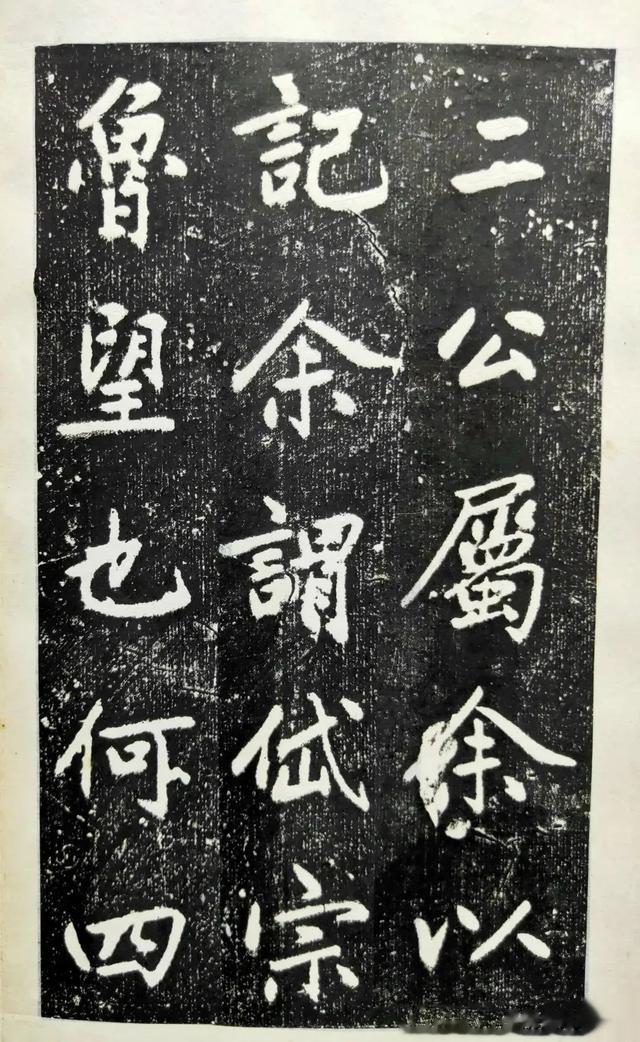 二公屬余以
記余謂岱宗
魯望也何四